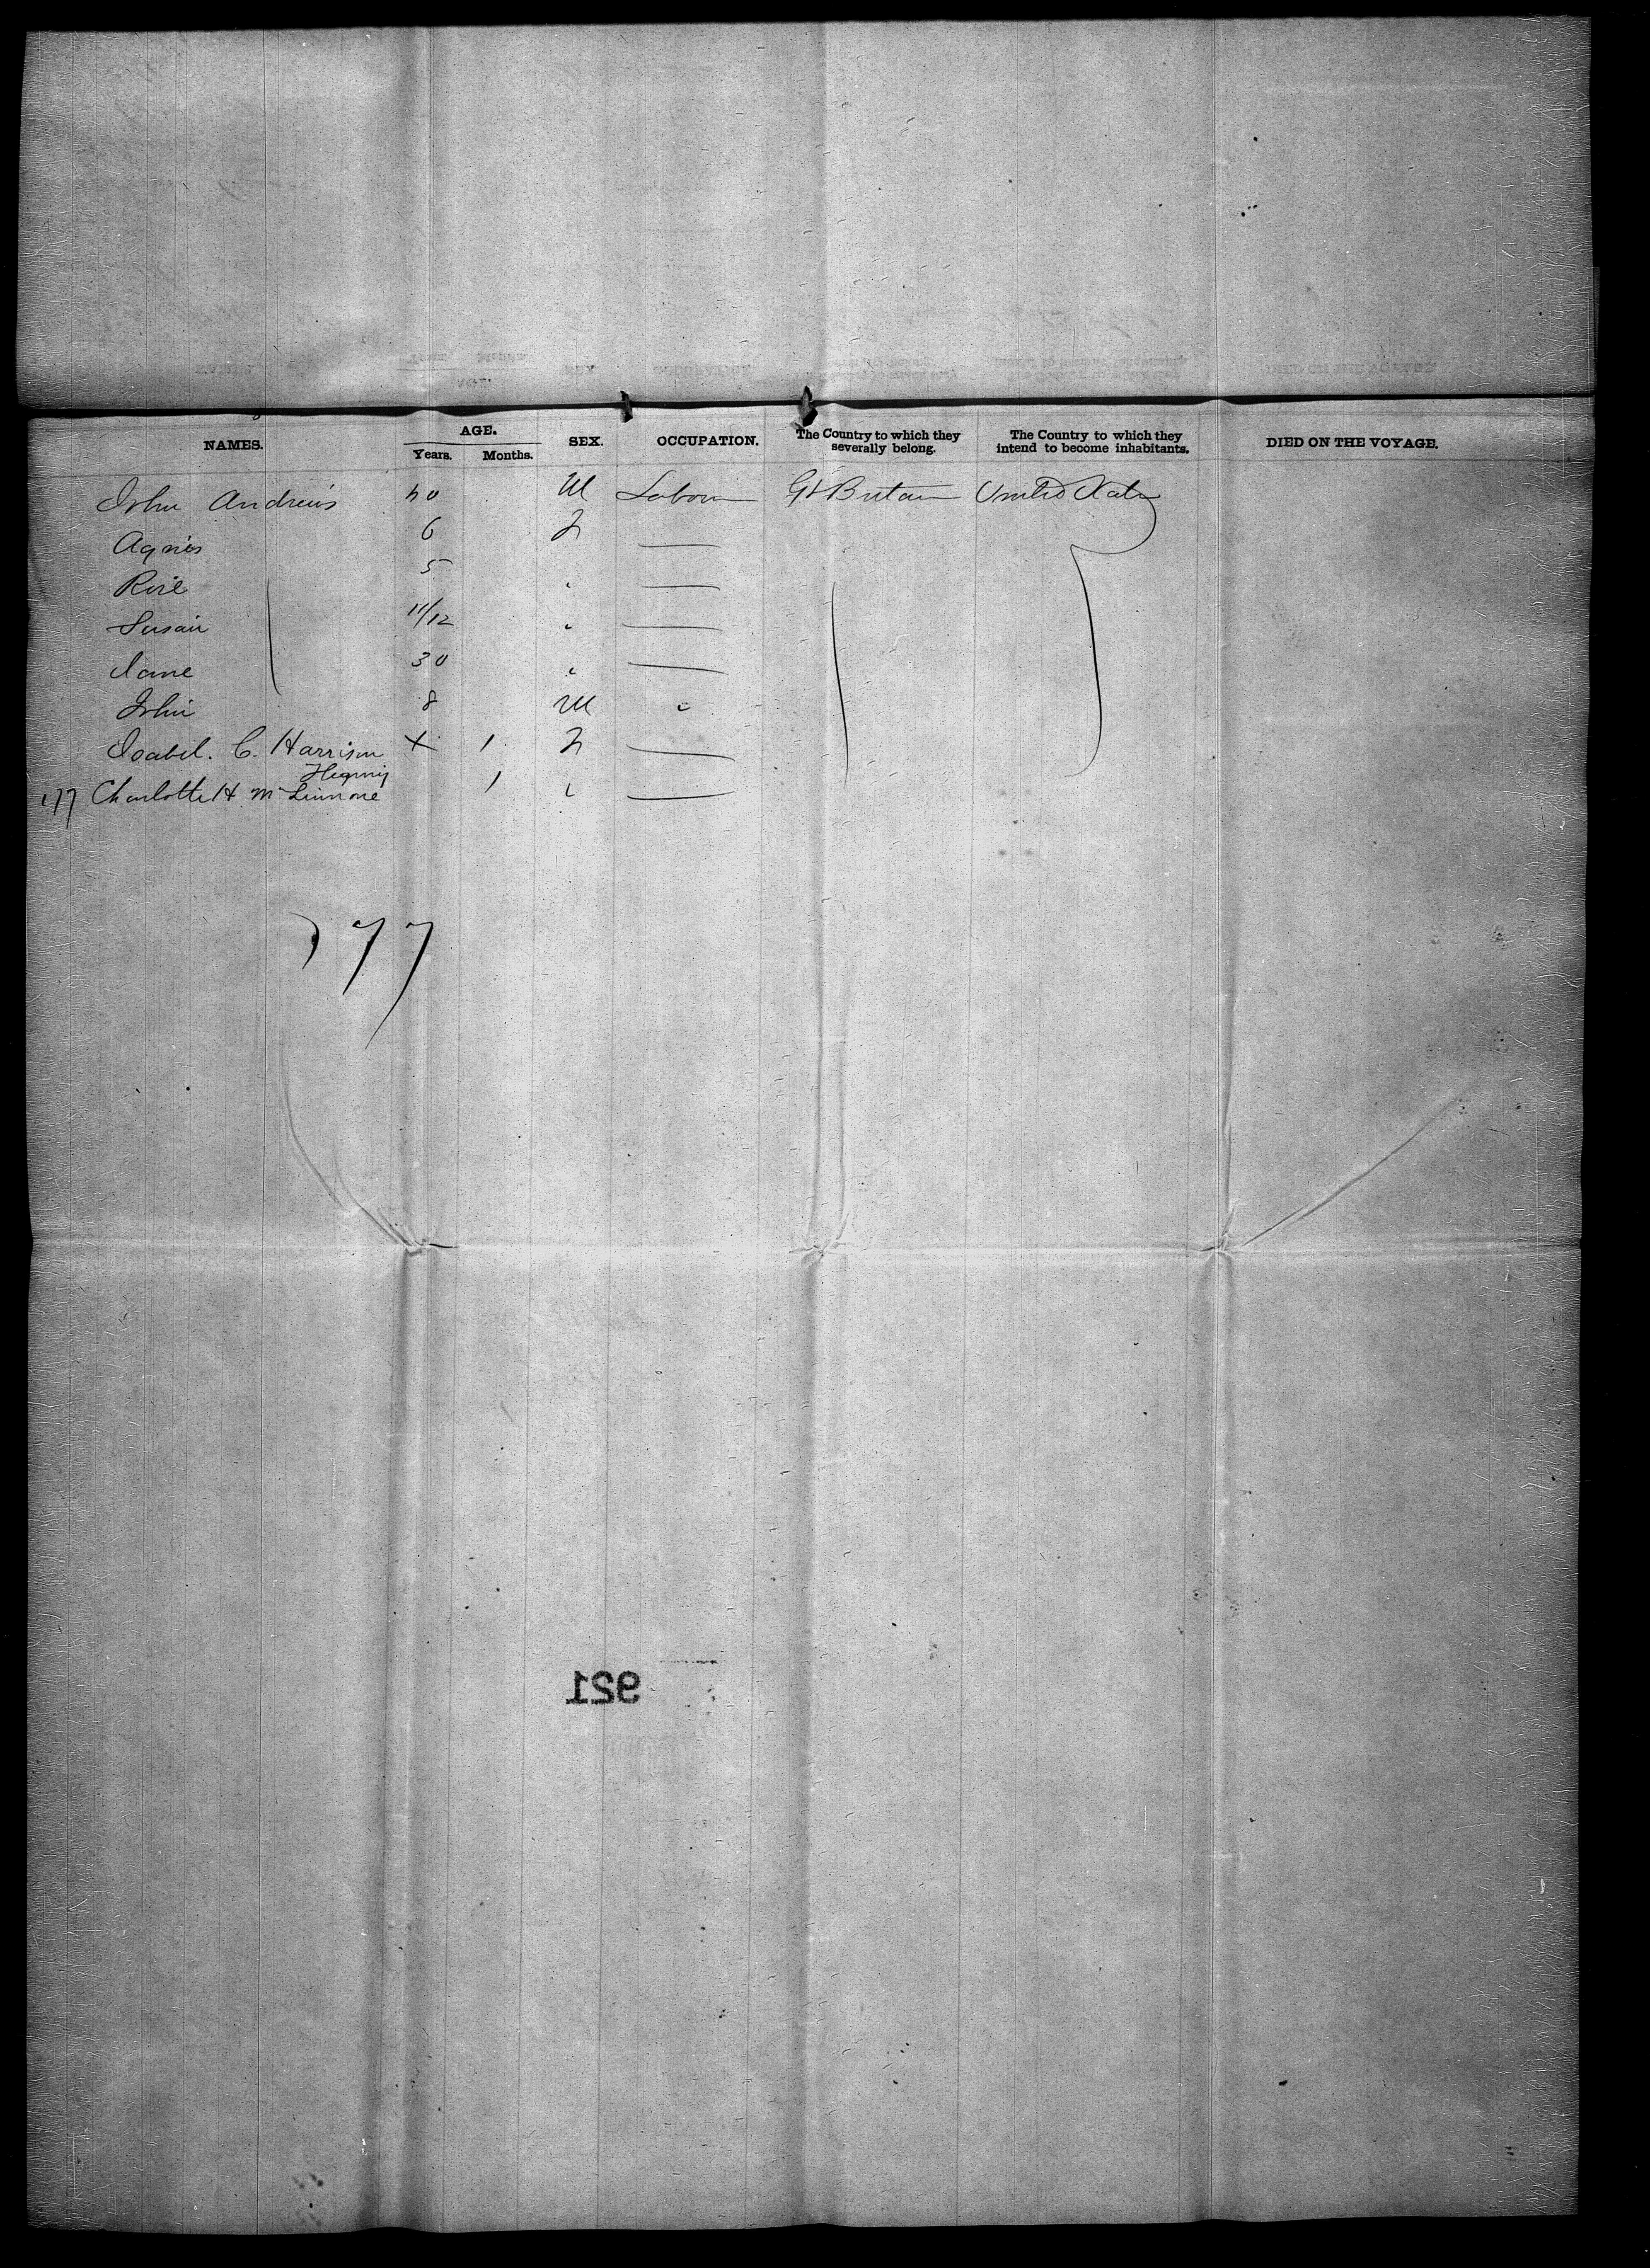 NAMES. AGE. SEX. OCCUPATION. The Country to which they severally belong. The Country to which they intend to become inhabitants. DIED ON THE VOYAGE.
Years. Months.
John Andrews 40 M Labour Gt Britain United States
Agnes 6 F
Rose 5 "
Susan 11/12 "
Jane 30 "
John 8 M "
Isabel. C. Harrison X 1 F
177 Charlotte H. Mc 1 "
177
921